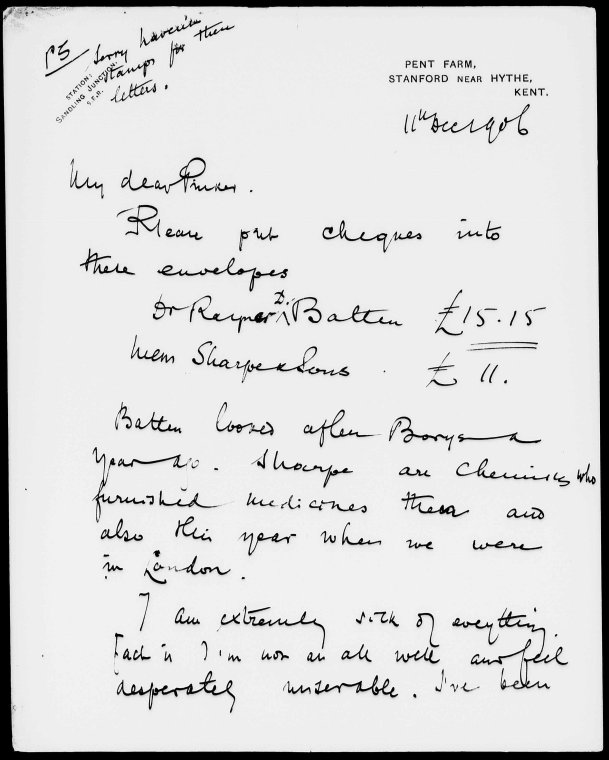 PS Sorry haven't
stamps for these
letters.
STATION:
SANDLING JUNCTION,
S.E.R.
PENT FARM,
STANFORD NEAR HYTHE,
KENT.
11th Dec 1906
My dear Pinker.
Please put cheques into
these envelopes
Dr Rayner D. Batten £15.15
Mess Sharpe & Sons . £ 11.
Batten looked after Borys a
year ago. Sharpe are chemists who
furnished medicines then and
also this year when we were
in London.
I am extremely sick of everything.
Fact is I'm not at all well and feel
desperately miserable. I've been